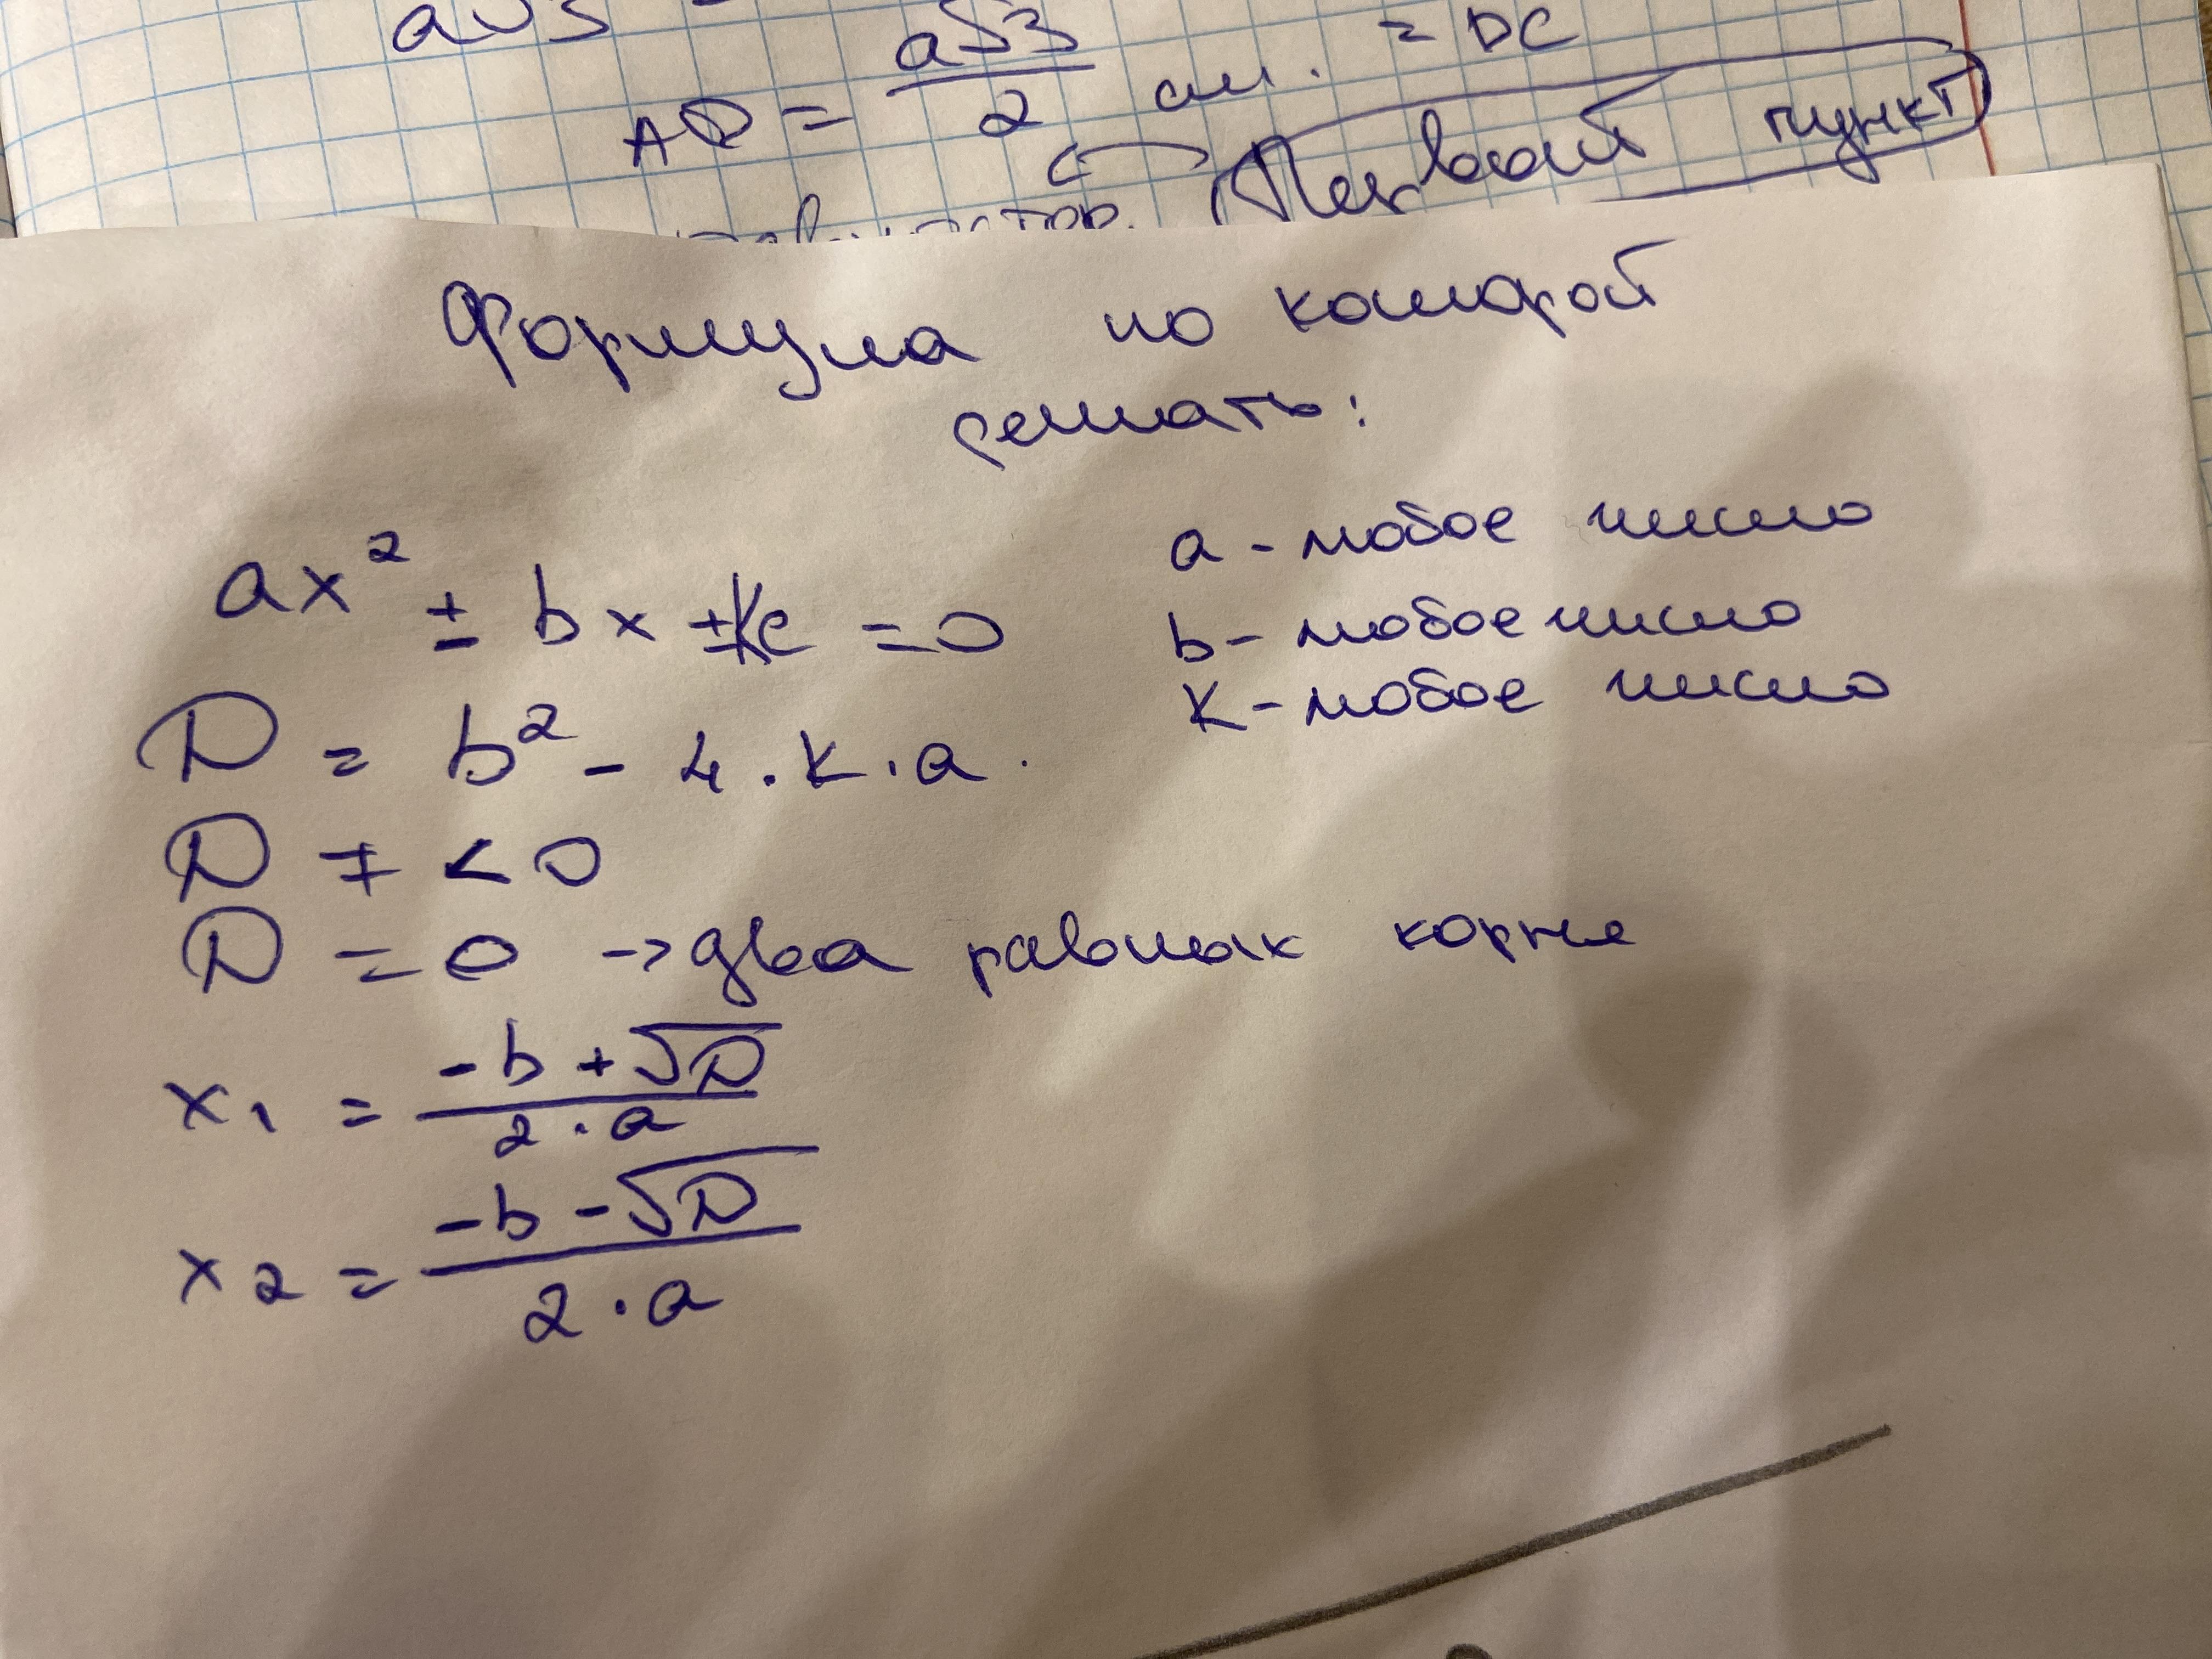 a√3
AD = a√3/2 см. = DC
Первый пункт
Формула по которой
решать:
ax² ± bx ± k = 0
a - любое число
b - любое число
k - любое число
D = b² - 4 · k · a.
D ≠ < 0
D = 0 → два равных корня
x₁ = (-b + √D)/(2 · a)
x₂ = (-b - √D)/(2 · a)